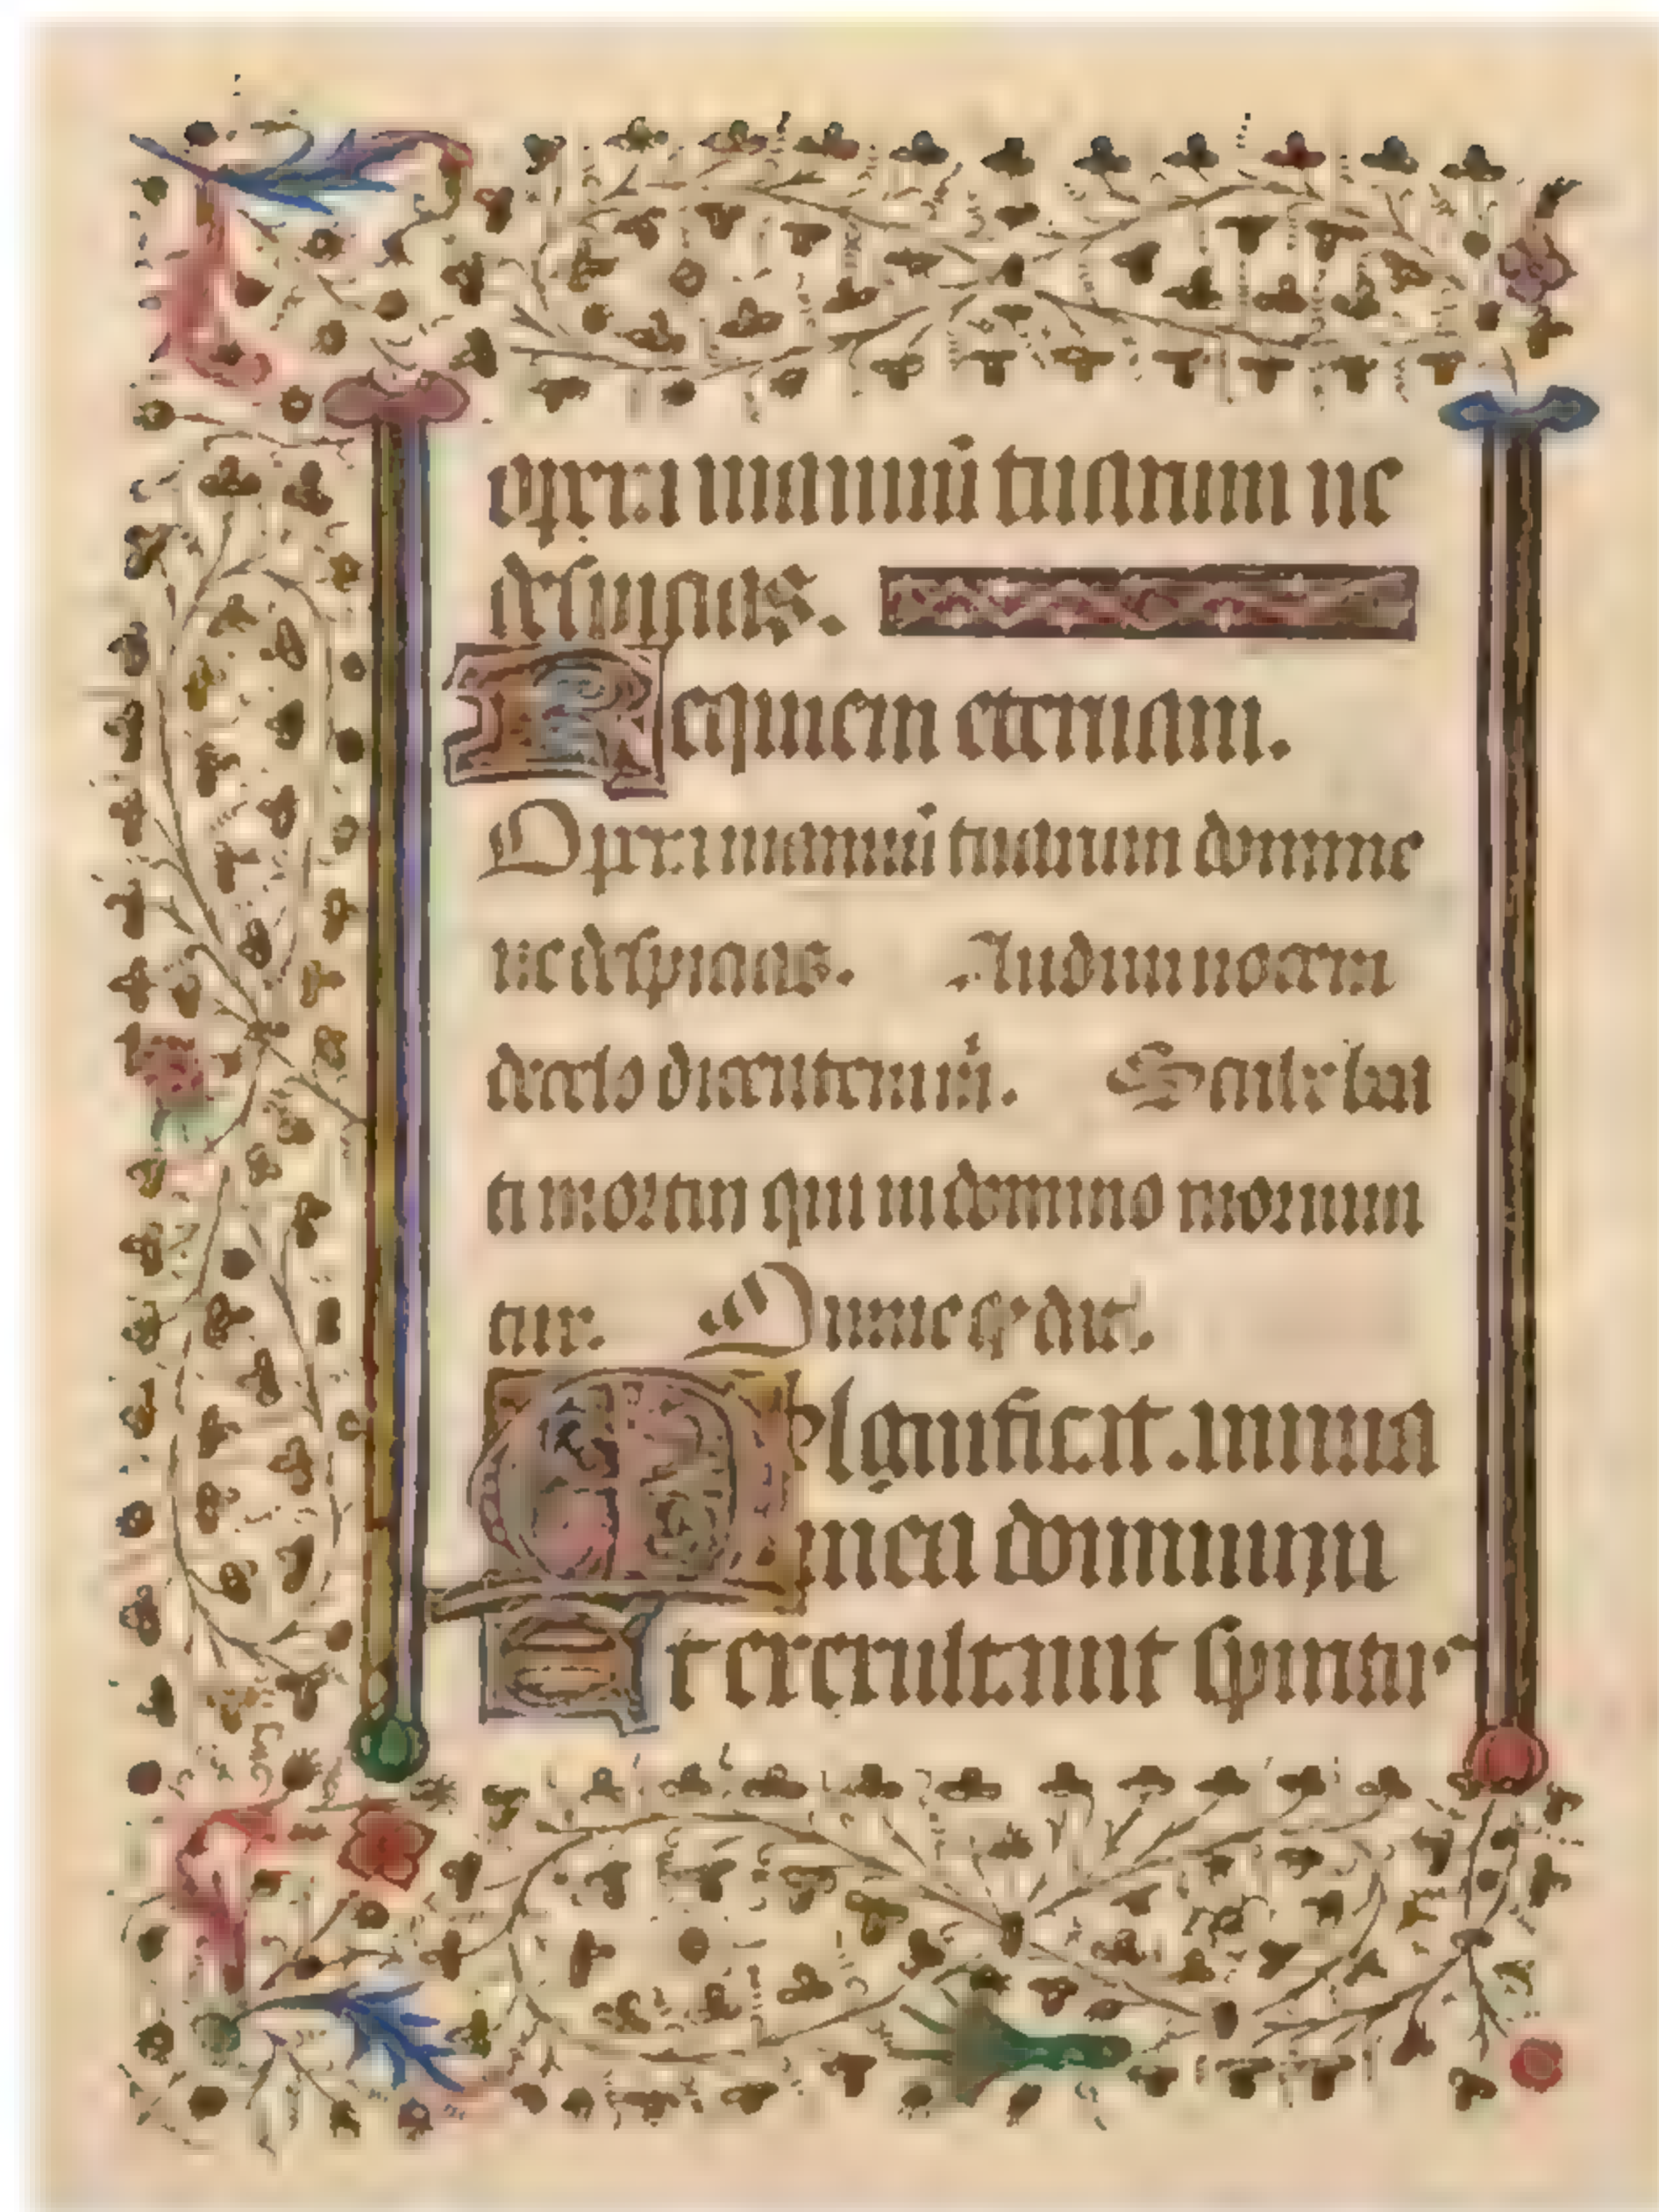 opera manuū tuarum ne
despicias.
Requiem eternam.
Opera manuū tuarum domine
ne despicias. Audiui uocem
de celo dicentem m. Beati
ti mortui qui in domino moriun
tur. Omne qͦ dat.
Magnificat. anima
mea dominum
Et exultauit spiritus